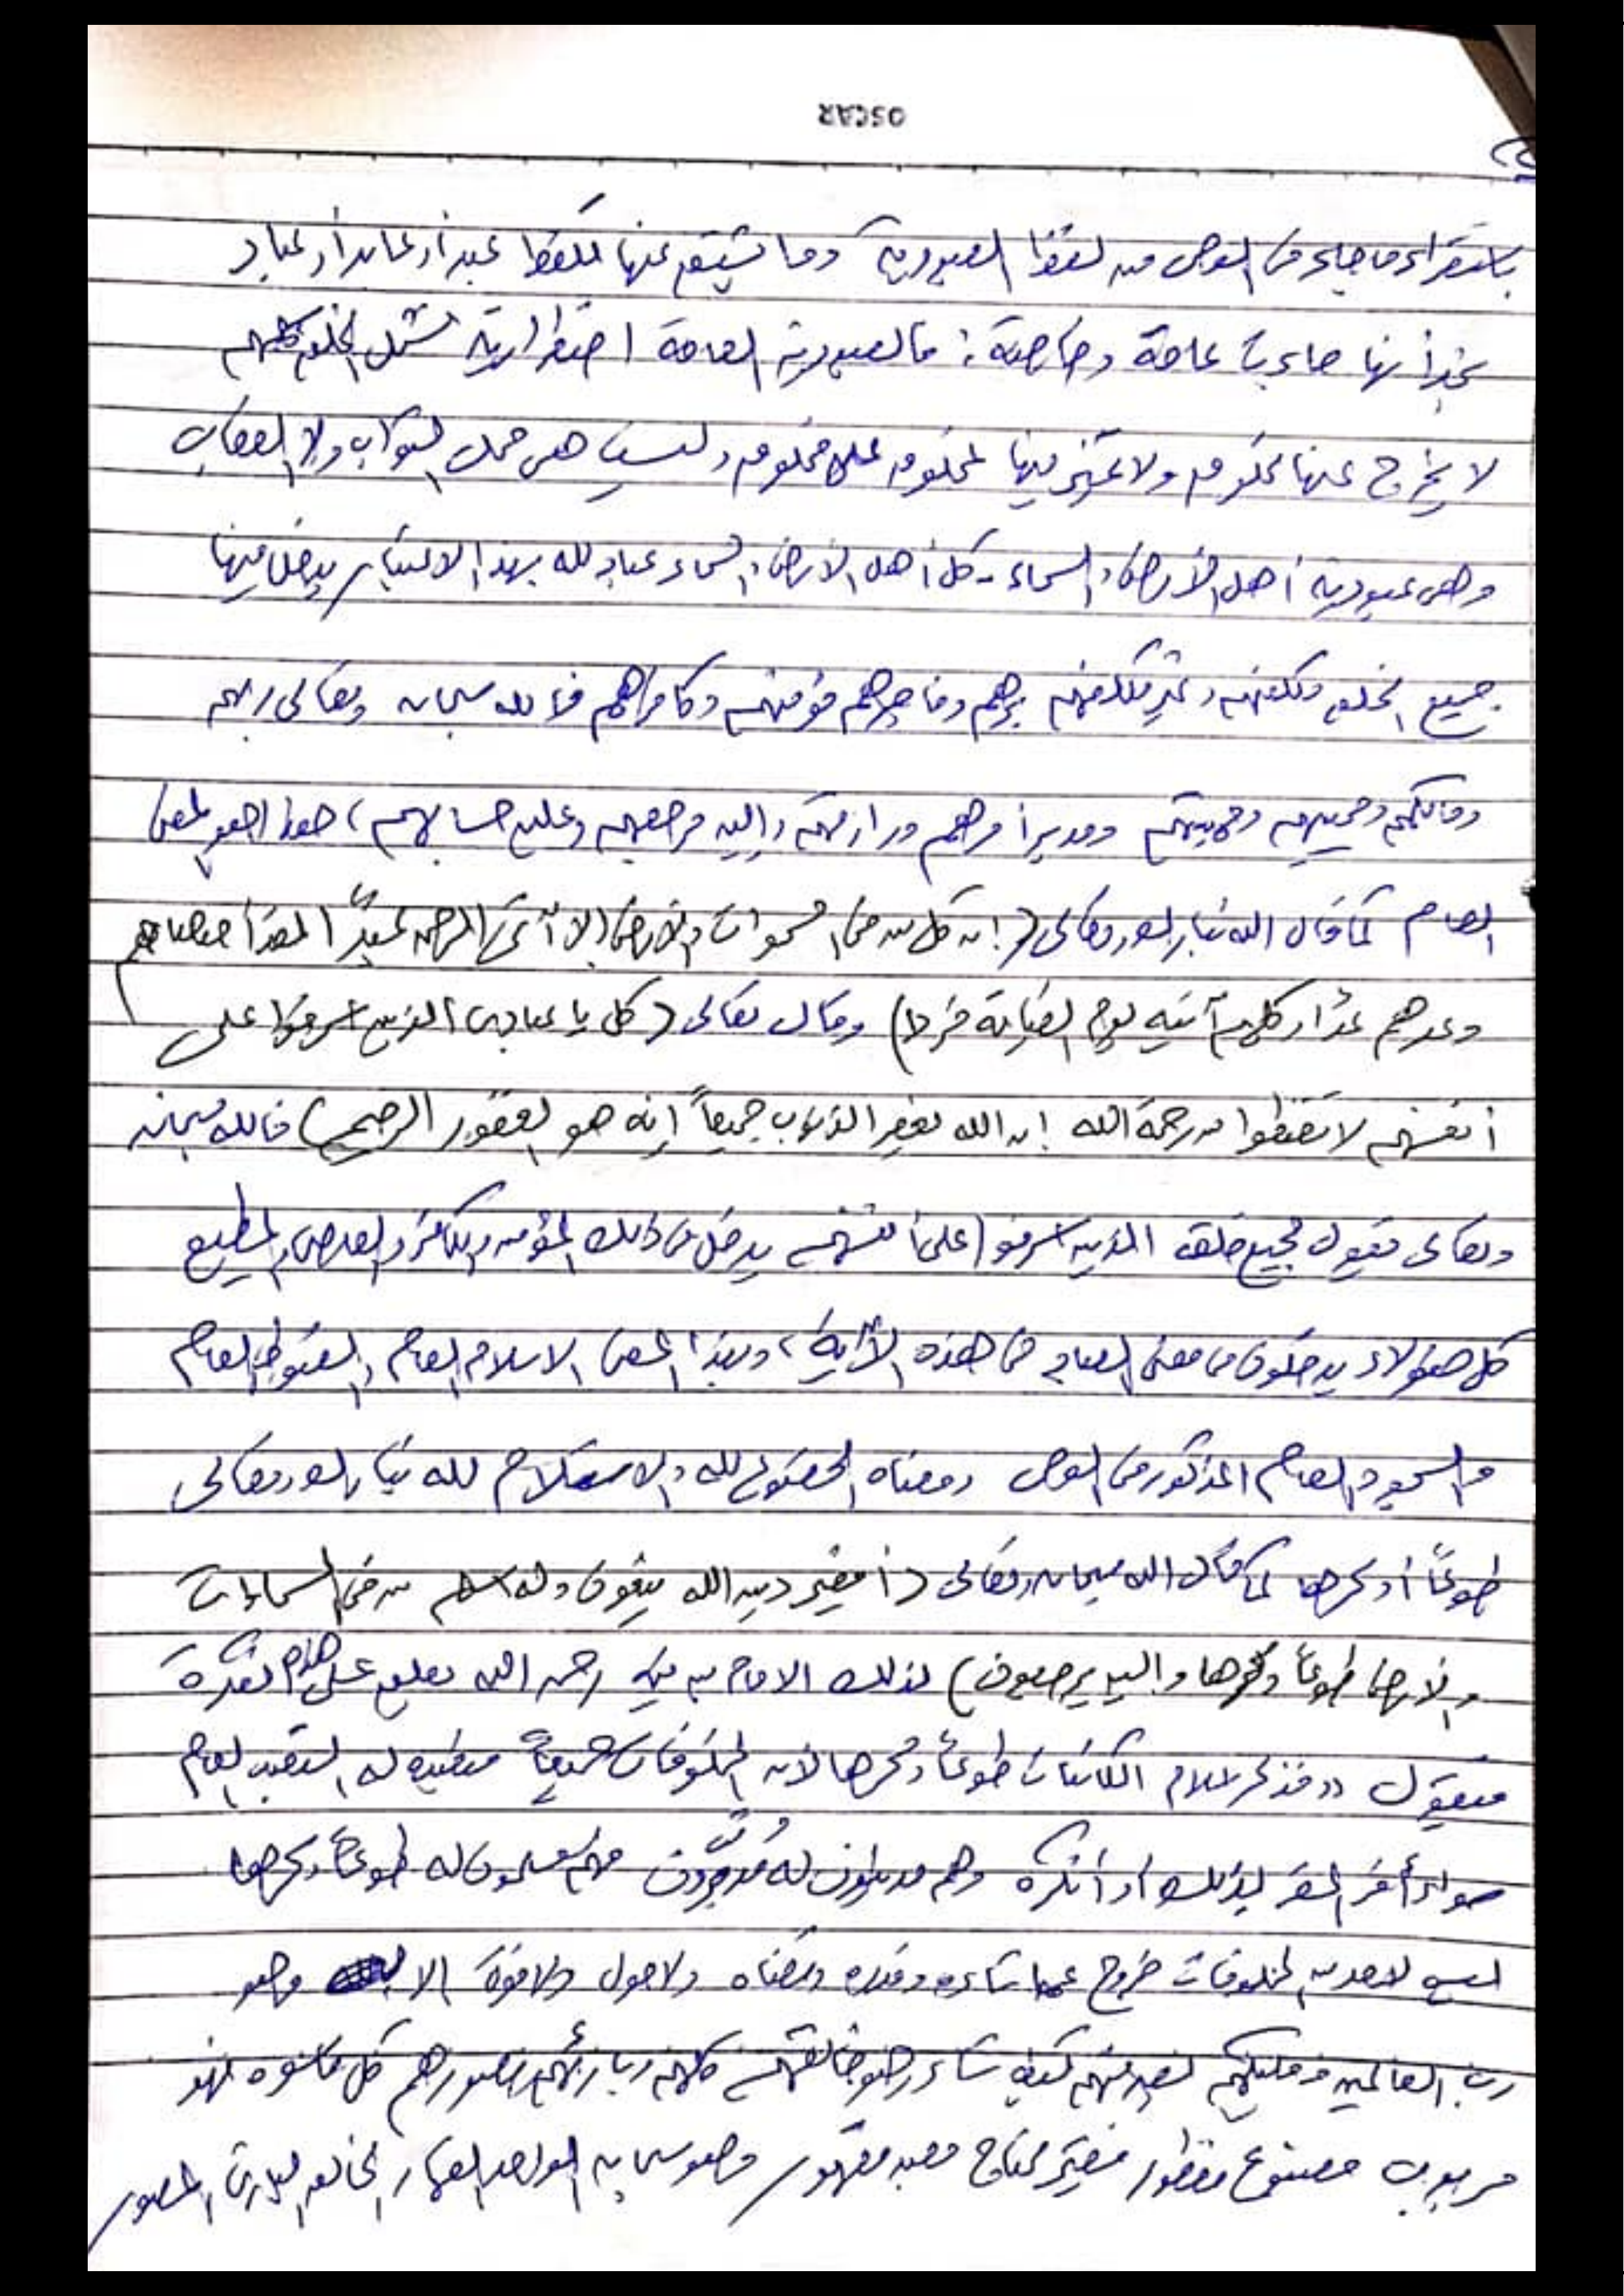 OSCAR
باستقراء ما جاء في النص من لفظ العبودية وما يشتق عنها كلفظ عبد أو عابد أو عباد
نجد أنها جاءت عامة وخاصة: فالعبودية العامة اضطرارية تشمل الخلق كلهم
لا يخرج عنها مخلوق ولا يتميز فيها مخلوق على مخلوق وليست هي محل الثواب ولا العقاب
وهي عبودية أهل الأرض والسماء - كل أهل الأرض والسماء عباد لله بهذا الاعتبار يدخل فيها
جميع الخلق مكلفهم وغير مكلفهم برهم وفاجرهم مؤمنهم وكافرهم فالله سبحانه وتعالى ربهم
ومالكهم ومحييهم ومميتهم ومدبر أمرهم ورازقهم وإليه مرجعهم وعليه حسابهم، هذا هو المعنى
العام كما قال الله تبارك وتعالى (إن كل من في السموات والأرض إلا آتي الرحمن عبداً لقد أحصاهم
وعدهم عداً وكلهم آتيه يوم القيامة فردا) وقال تعالى (قل يا عبادي الذين أسرفوا على
أنفسهم لا تقنطوا من رحمة الله إن الله يغفر الذنوب جميعاً إنه هو الغفور الرحيم) فالله سبحانه
وتعالى يقول لجميع خلقه الذين أسرفوا على أنفسهم يدخل في ذلك المؤمن والكافر والعاصي والمطيع
كل هؤلاء يدخلون في معنى العباد في هذه الآية، وبهذا المعنى الاسلام العام والقنوت العام
والسجود العام المذكور في النص ومعناه الخضوع لله والاستسلام لله تبارك وتعالى
طوعاً أو كرها كما قال الله سبحانه وتعالى (أفغير دين الله يبغون وله أسلم من في السماوات
والأرض طوعاً وكرها وإليه يرجعون) لذلك الامام رحمه الله يعلق على هذه الفقرة
فيقول ((فذكر إسلام الكائنات طوعاً وكرها لأن المخلوقات جميعاً متعبده له التعبد العام
سواء أقر المقر بذلك أو أنكره وهم مدينون له مدبرون فهم مسلمون له طوعاً وكرها
ليس لأحد من المخلوقات خروج عما شاءه وقدره وقضاه ولا حول ولا قوة إلا به وهو
رب العالمين ومليكهم يصرفهم كيف شاء وهو خالقهم كلهم وبارئهم ومصورهم كل ما سواه فهو
مربوب مصنوع مفطور فقير محتاج معبد مقهور وهو سبحانه الواحد القهار الخالق البارئ المصور